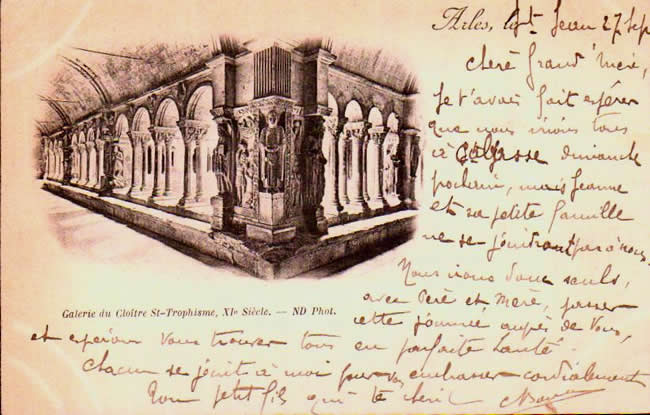 Arles, le St Jean 27 Sep
Chère Grand'mère,
Je t'avais fait espérer
que nous irions tous
à dimanche
prochain, mais Jeanne
et sa petite famille
ne se joindront pas à nous.
Nous irons donc seuls,
avec Père et Mère, passer
cette journée auprès de Vous,
Galerie du Cloître St-Trophisme, XIe Siècle. — ND Phot.
et espérons vous trouver tous en parfaite santé.
Chacun se joint à moi pour vous embrasser cordialement
Ton petit fils qui te chérit